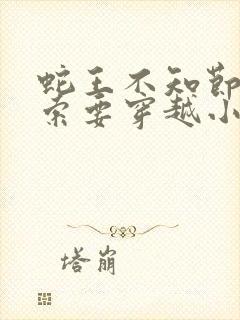 蛇王不知节
索要穿越小
塔崩